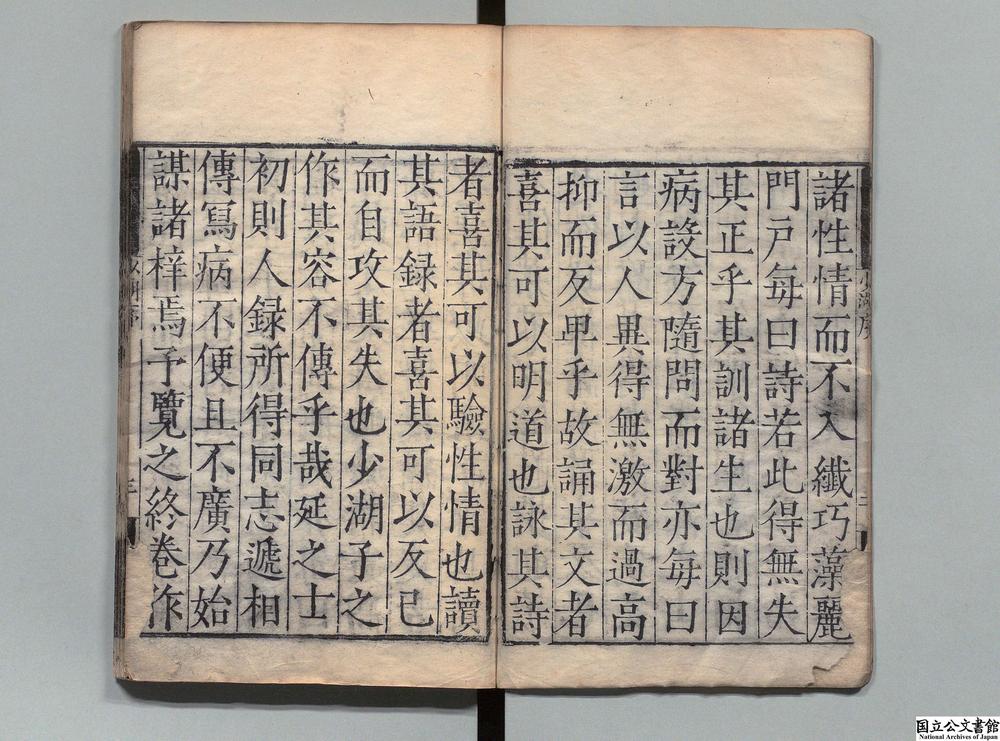 諸性情而不入纖巧藻麗
門戶每曰詩若此得無失
其正乎其訓諸生也則因
病設方隨問而對亦每曰
言以人異得無激而過高
抑而反卑乎故誦其文者
喜其可以明道也詠其詩
者喜其可以驗性情也讀
其語録者喜其可以反己
而自攻其失也少湖子之
作其容不傳乎哉延之士
初則人録所得同志遞相
傳寫病不便且不廣乃始
謀諸梓焉予覽之終卷作
国立公文書館
National Archives of Japan